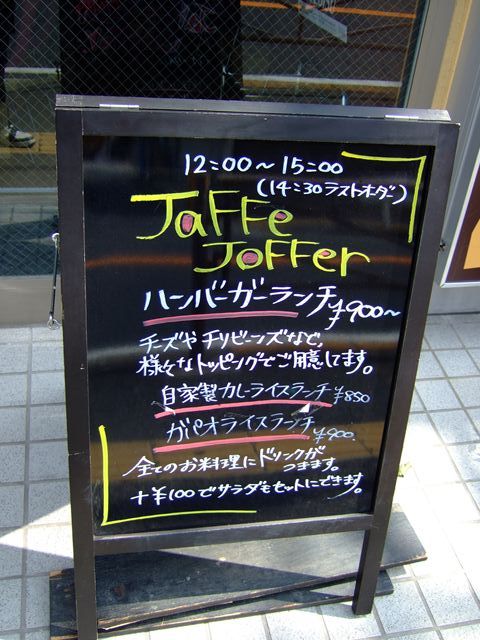 12:00〜15:00
(14:30ラストオーダー)
Jaffe
Joffer
ハンバーガーランチ ¥900〜
チーズやチリビーンズなど,
様々なトッピングでご用意してます。
自家製カレーライスランチ ¥850
ガパオライスランチ ¥900.
全てのお料理にドリンクが
つきます。
+¥100でサラダもセットにできます。